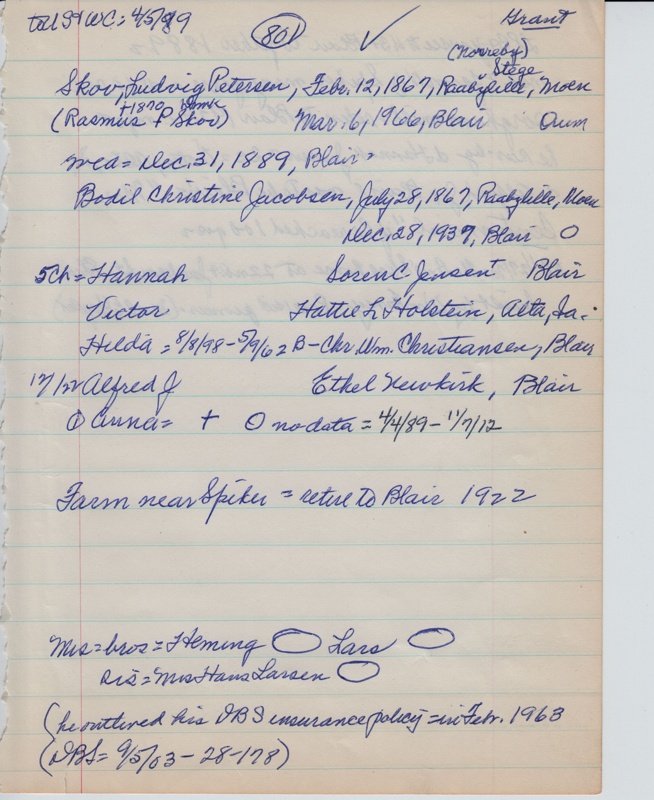 801
Grant
(Norreby)
Stege
Skov, Ludvig Petersen, Febr. 12, 1867, Raabylille, Moen
+1870
(Rasmus P Skov) Mar. 6, 1966, Blair
wed = Dec. 31, 1889, Blair =
Bodil Christine Jacobsen, July 28, 1867, Raabylille, Moen
Dec. 28, 1937, Blair O
5 Ch = Hannah Soren C Jensen + Blair
Victor Hattie L Holstein, Alta, Ia.
Hilda = 8/8/98 - 5/9/62 B - Chr. Wm. Christiansen, Blair
Alfred J Ethel Newkirk, Blair
O Anna = + O no data = 4/4/89 - 11/7/12
Farm near Spiker = retire to Blair 1922
Mrs = bros = Fleming O Lars O
sis = Mrs Hans Larsen O
(he outlived his DBS insurance policy = in Febr. 1963
(DBS = 9/5/03 - 28 - 178)